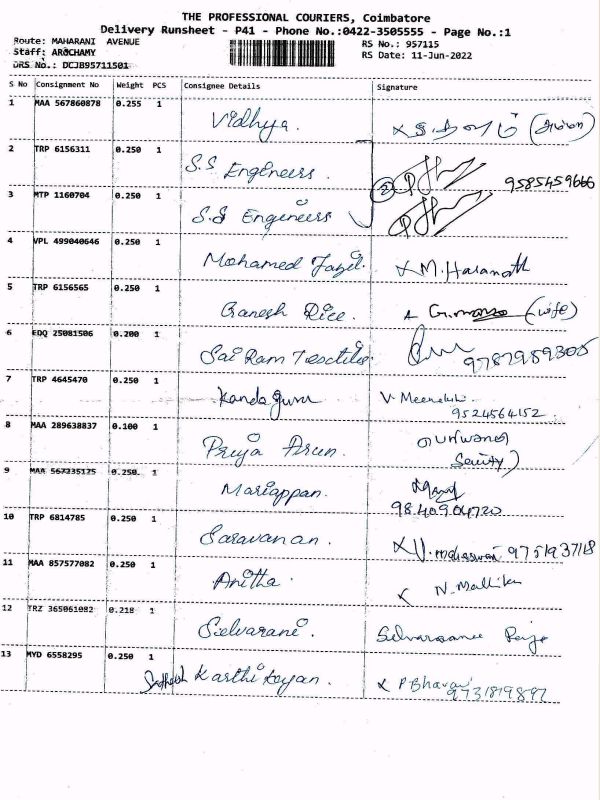 THE PROFESSIONAL COURIERS, Coimbatore
Delivery Runsheet - P41 - Phone No.:0422-3505555 - Page No.:1
Route: MAHARANI AVENUE RS No.: 957115
Staff: AROCHAMY RS Date: 11-Jun-2022
DRS No.: DCJB95711501
S No Consignment No Weight PCS Consignee Details Signature
1 MAA 567860878 0.255 1 Vidhya.
2 TRP 6156311 0.250 1 S.S Engineers. 9585459666
3 MTP 1160704 0.250 1 S.S Engineers
4 VPL 499040646 0.250 1 Mohamed Fazil. M. Haranath
5 TRP 6156565 0.250 1 Ganesh Rice. (wife)
6 EDQ 25081506 0.200 1 Sai Ram Textiles
7 TRP 4645470 0.250 1 Kanda guru V. Meenakshi
9524564152
8 MAA 289638837 0.100 1 Priya Arun.
9 MAA 567235125 0.250 1 Mariappan.
9840904720
10 TRP 6814785 0.250 1 Saravanan. 9751937118
11 MAA 857577082 0.250 1 Anitha. N. Mallika
12 TRZ 365061082 0.218 1 Selvarani.
13 MYD 6558295 0.250 1 Karthikeyan. P Bhavani